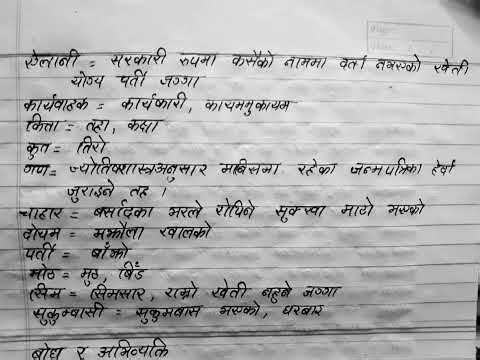 ऐलानी = सरकारी रुपमा कसैको नाममा दर्ता नभएको खेती
योग्य पर्ती जग्गा
कार्यवाहक = कार्यकारी, कायममुकायम
कित्ता = तहा, कक्षा
कुत = तिरो
गण = ज्योतिषशास्त्रअनुसार मानिसमा रहेका जन्मपत्रिका हेर्दा
जुराइने तह ।
चाहार = बर्सादका भरले रोपिने सुक्खा माटो भएको
दोयम = मझौला खालको
पर्ती = बाँझो
मोठ = मुठ, बिँड
सिम = सिमसार, राम्रो खेती नहुने जग्गा
सुकुम्बासी = सुकुमबास भएको, घरबार
बोध र अभिव्यक्ति